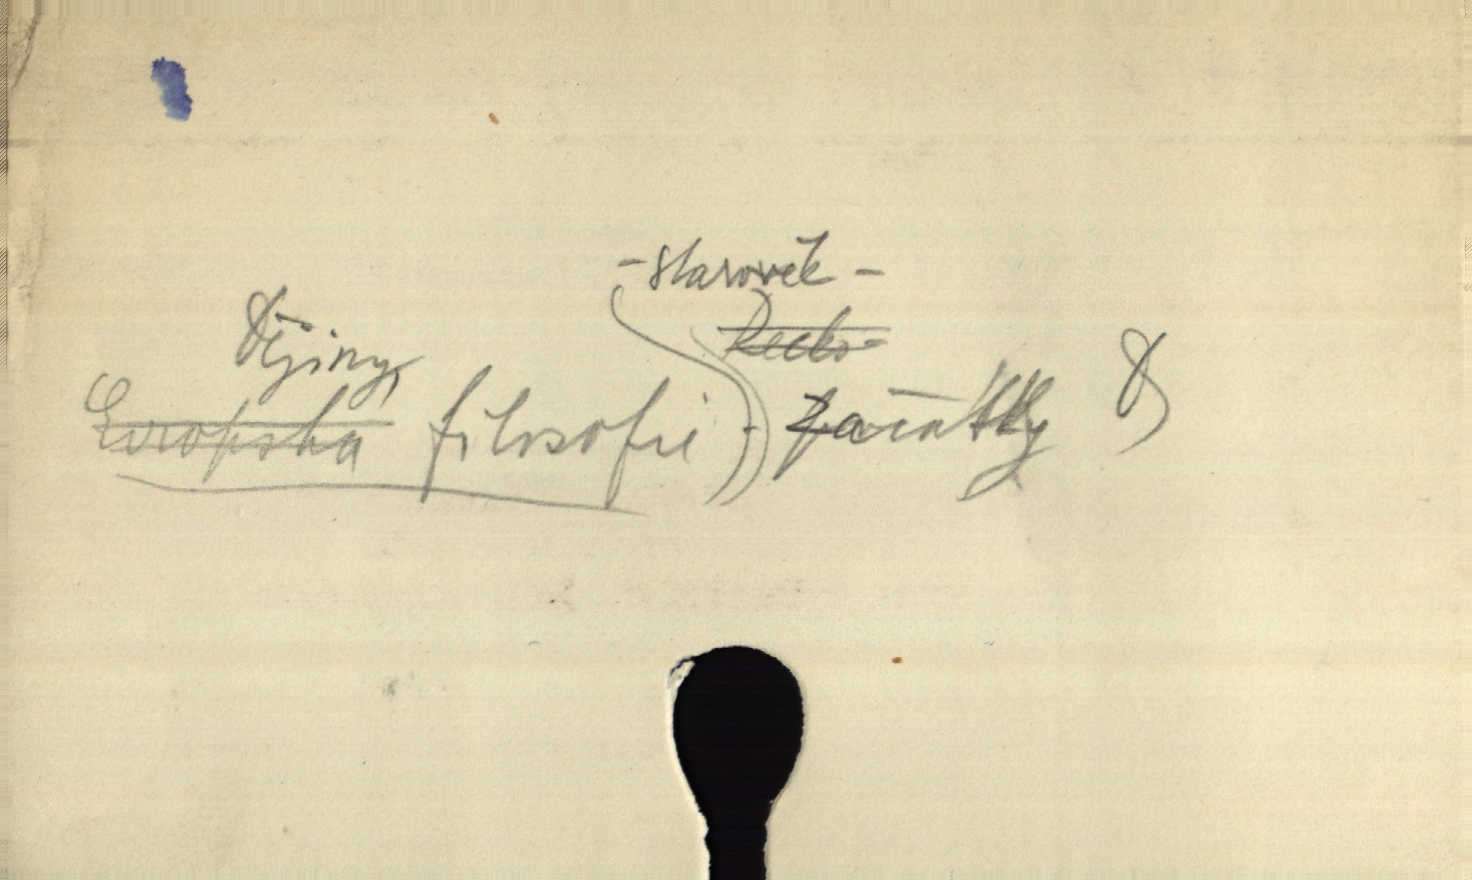 - starověk -
Řecko -
Dějiny
Evropská filosofie - začátky